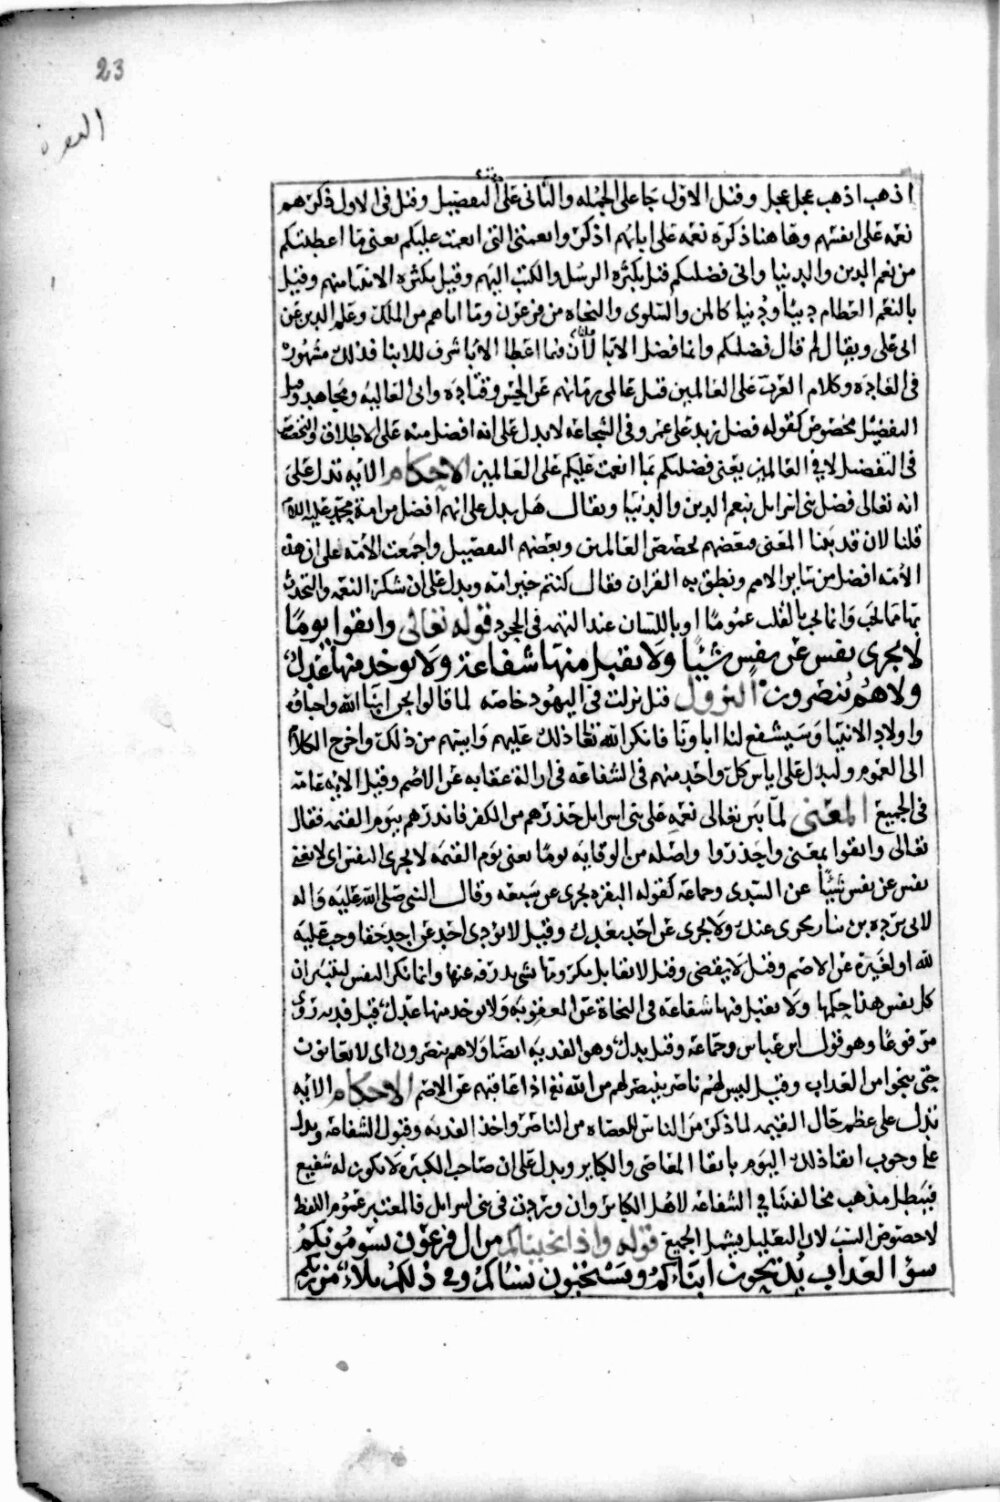 23
البقرة
اذهب اذهب عجل عجل وقيل الاول جا على الجمله والثانى على التفصيل وقيل فى الاول ذكرهم
نعمه على انفسهم وهاهنا ذكره نعمه على ابائهم اذكروا نعمتى التى انعمت عليكم يعنى ما اعطيتكم
من نعم الدين والدنيا وانى فضلتكم قيل بكثره الرسل والكتب اليهم وقيل بكثره الانبيا منهم وقيل
بالنعم العظام دينا ودنيا كالمن والسلوى والنجاه من فرعون وما اتاهم من الملك وعلم الدين عن
ابى على ويقال لم قال فضلتكم وانما فضل الابا قلنا لأن فيما اعطا الابا شرف للابنا فذلك مشهور
فى العاده وكلام العرب على العالمين قيل عالمى زمانهم عن الحسن وقتاده وابى العاليه ومجاهد وقيل
التفضيل مخصوص كقوله فضل زيد على عمرو فى الشجاعه لا يدل على انه افضل منه على الاطلاق
فى التفضيل لا فى العالمين يعنى فضلتكم بما انعمت عليكم على العالمين الاحكام الايه تدل على
انه تعالى فضل بنى اسرايل بنعم الدين والدنيا ويقال هل يدل على انهم افضل من امة محمد عليه السلام
قلنا لا لان قد بينا المعنى فبعضهم يخصص العالمين وبعضهم التفضيل واجمعت الأمه على ان هذه
الأمه افضل من ساير الامم ونطق به القران فقال كنتم خير امه ويدل على ان شكر النعم والتحدث
بها مما يجب وانما يجب بالقلب عموما او باللسان عند التهمه فى الجحود قوله تعالى واتقوا يوما
لا يجزى نفس عن نفس شيئا ولا يقبل منها شفاعة ولا يوخذ منها عدل
ولاهم ينصرون النزول قيل نزلت فى اليهود خاصه لما قالوا نحن ابنا الله واحباؤه
واولاد الانبيا وسيشفع لنا اباونا فانكر الله تعالى ذلك عليهم وايسهم من ذلك واخرج الكلام
الى العموم وليدل على اياس كل واحد منهم فى الشفاعه فى ازالة عقابه عن الاصم وقيل الايه عامه
فى الجميع المعنى لما بين تعالى نعمه على بنى اسرايل حذرهم من الكفر فانذرهم بيوم القيمه فقال
تعالى واتقوا بمعنى واحذروا واصله من الوقايه يوما يعنى يوم القيمه لا يجزى النفس اى لا تغنى
نفس عن نفس شيئا عن السدى وجماعه كقوله البقره يجزى عن سبعه وقال النبى صلى الله عليه واله
لابى برده بن نيار يجزى عنك ولا يجزى عن احد بعدك وقيل لا تودى احد عن احد حقا وجب عليه
لله او لغيره عن الاصم وقيل لا يقضى وقيل لا تقابل مكروها بشى يدرؤه عنها وانما نكر النفس ليتبين ان
كل نفس هذا حكمها ولا يقبل منها شفاعه فى النجاة عن العقوبه ولا يوخذ منها عدل قيل فديه روى
مرفوعا وهو قول ابن عباس وجماعه وقيل بدل وهو الفديه ايضا ولاهم ينصرون اى لا يعانون
حتى ينجوا من العذاب وقيل ليس لهم ناصر ينتصر لهم من الله تع اذا عاقبهم عن الاصم الاحكام الايه
تدل على عظم حال القيمه لما ذكر من الناس للعصاه من الناصر واخذ الفديه وقبول الشفاعه ويدل
على وجوب اتقا ذلك اليوم باتقا المعاصى والكباير ويدل على ان صاحب الكبيره لا يكون له شفيع
فيبطل مذهب مخالفينا فى الشفاعه لاهل الكباير وان وردت فى بنى اسرايل فالمعتبر عموم اللفظ
لا خصوص السبب لان التعليل يشمل الجميع قوله واذ انجيناكم من ال فرعون يسومونكم
سوا العذاب يذبحون ابناءكم ويستحيون نساكم وفى ذلكم بلاء من ربكم